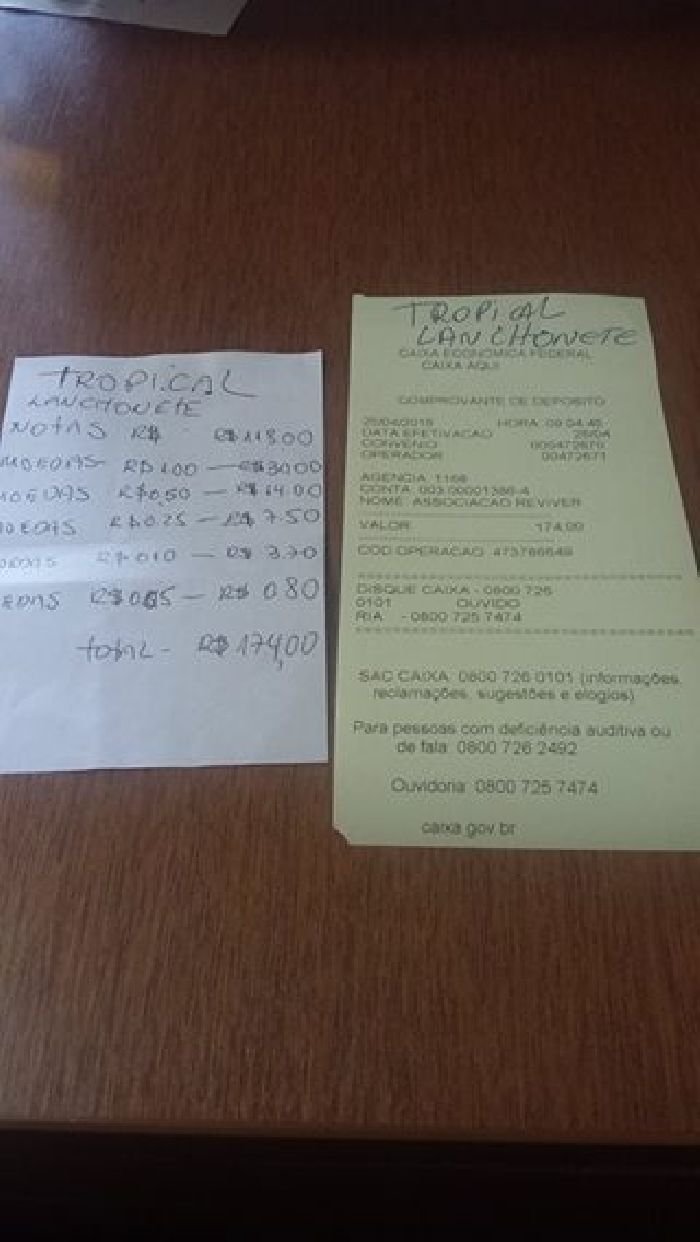 TROPICAL
LANCHONETE
NOTAS R$ R$118.00
MOEDAS R$1.00 — R$30.00
MOEDAS R$0,50 — R$14.00
MOEDAS R$0.25 — R$7.50
R$010 — R$ 3.70
R$005 — R$ 080
TOTAL - R$174,00
TROPICAL
LANCHONETE
CAIXA ECONOMICA FEDERAL
CAIXA AQUI
COMPROVANTE DE DEPOSITO
HORA: 09:04:45
DATA EFETIVACAO 26/04
CONVENIO
OPERADOR 00472671
AGENCIA: 1168
CONTA:
NOME: ASSOCIACAO REVIVER
VALOR: 174,00
COD OPERACAO:
DISQUE CAIXA - 0800 726
0101 OUVIDO
RIA - 0800 725 7474
SAC CAIXA: 0800 726 0101 (informações,
reclamações, sugestões e elogios)
Para pessoas com deficiência auditiva ou
de fala: 0800 726 2492
Ouvidoria: 0800 725 7474
caixa.gov.br